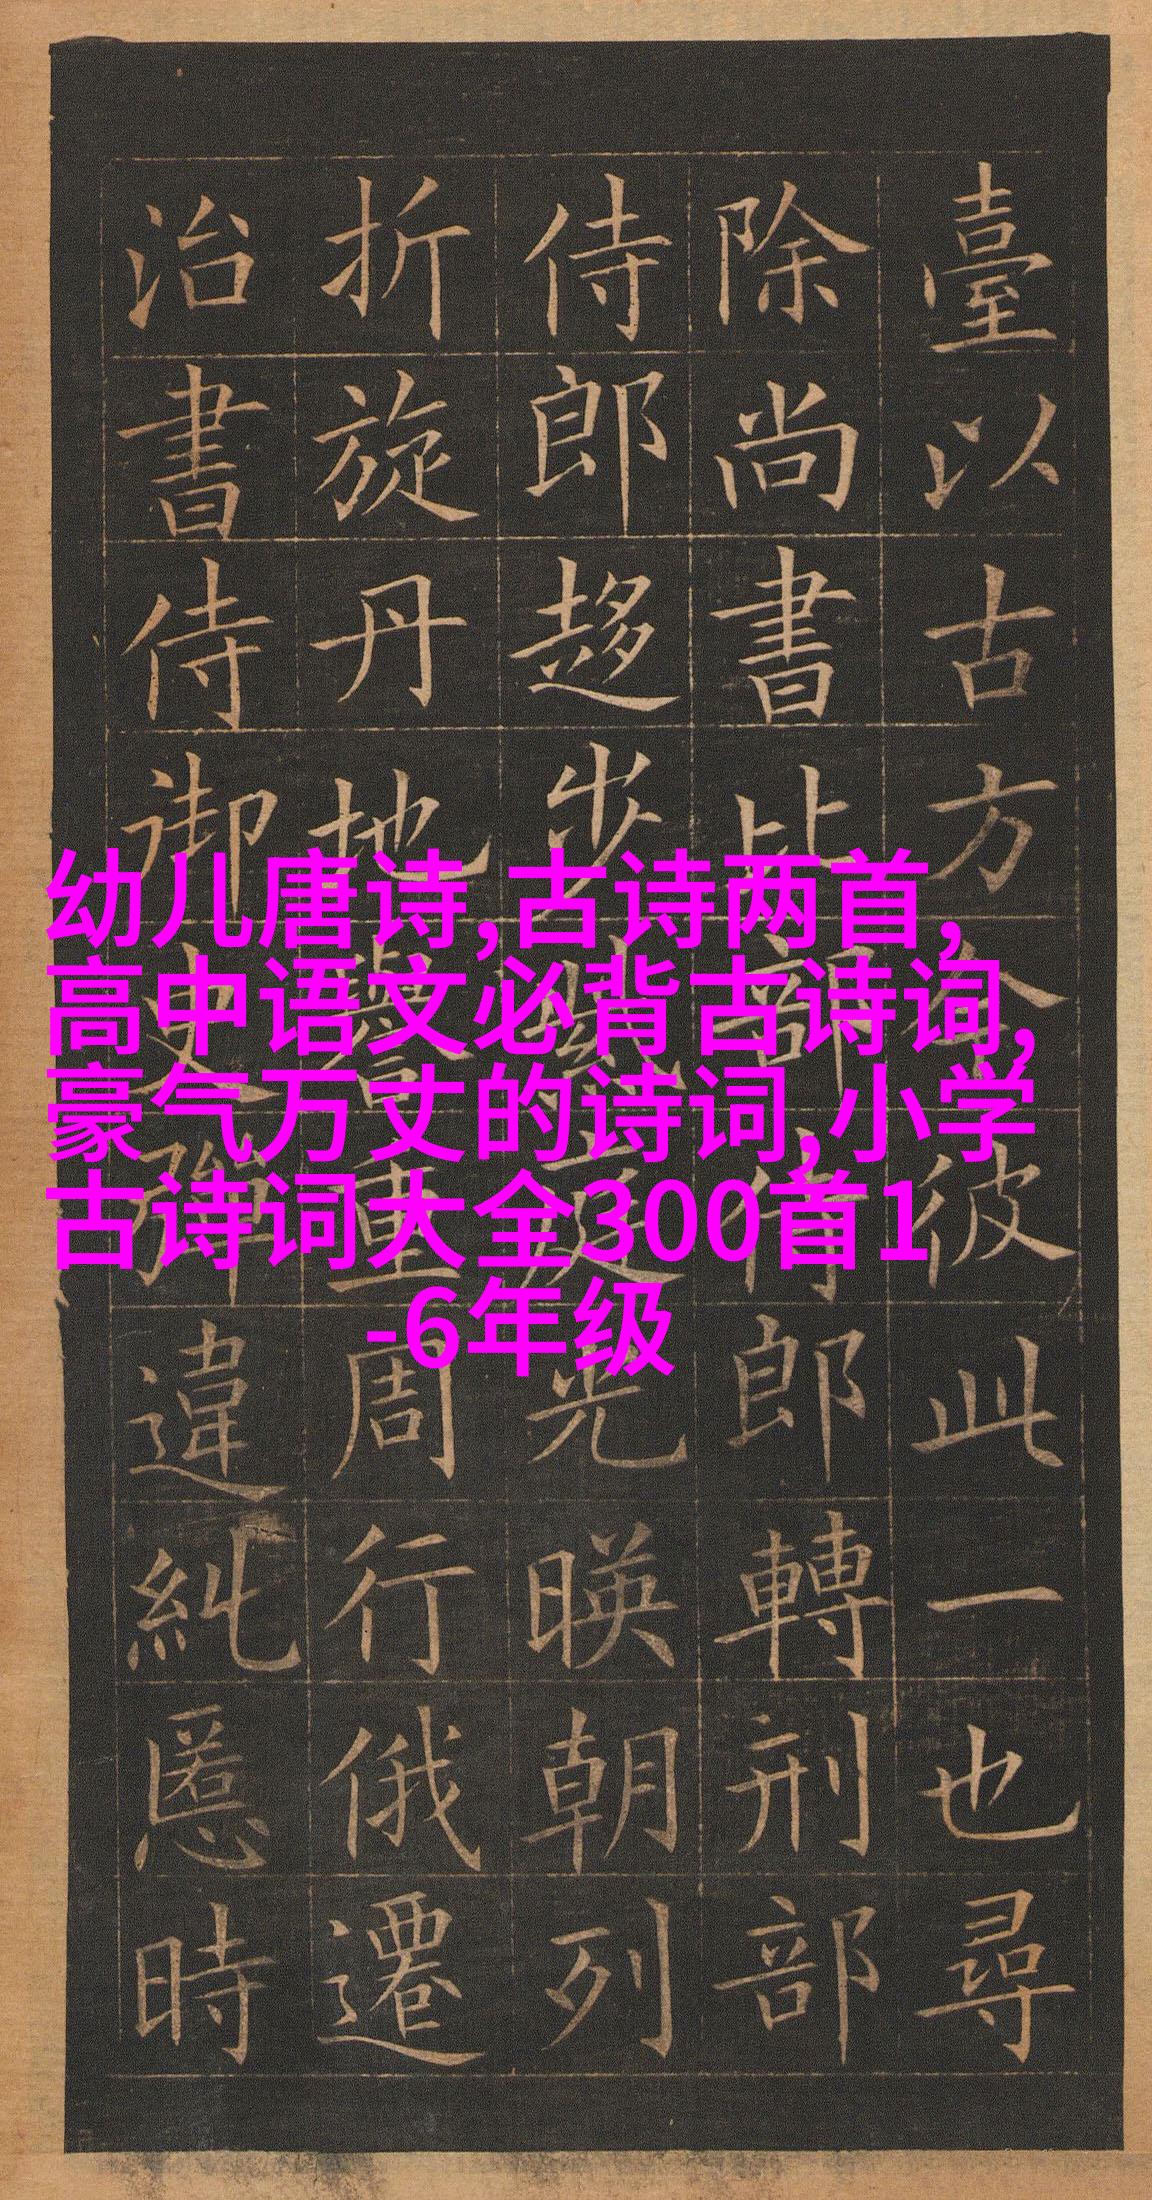 臺以古方今彼此一也尋
除尚書比部侍郎轉刑部
侍郎趍步光暎朝列
折旋丹地譽重周行俄遷
治書侍御史彈違糾慝時
幼儿唐诗,古诗两首,
高中语文必背古诗词,
豪气万丈的诗词,小学
古诗词大全300首1
-6年级